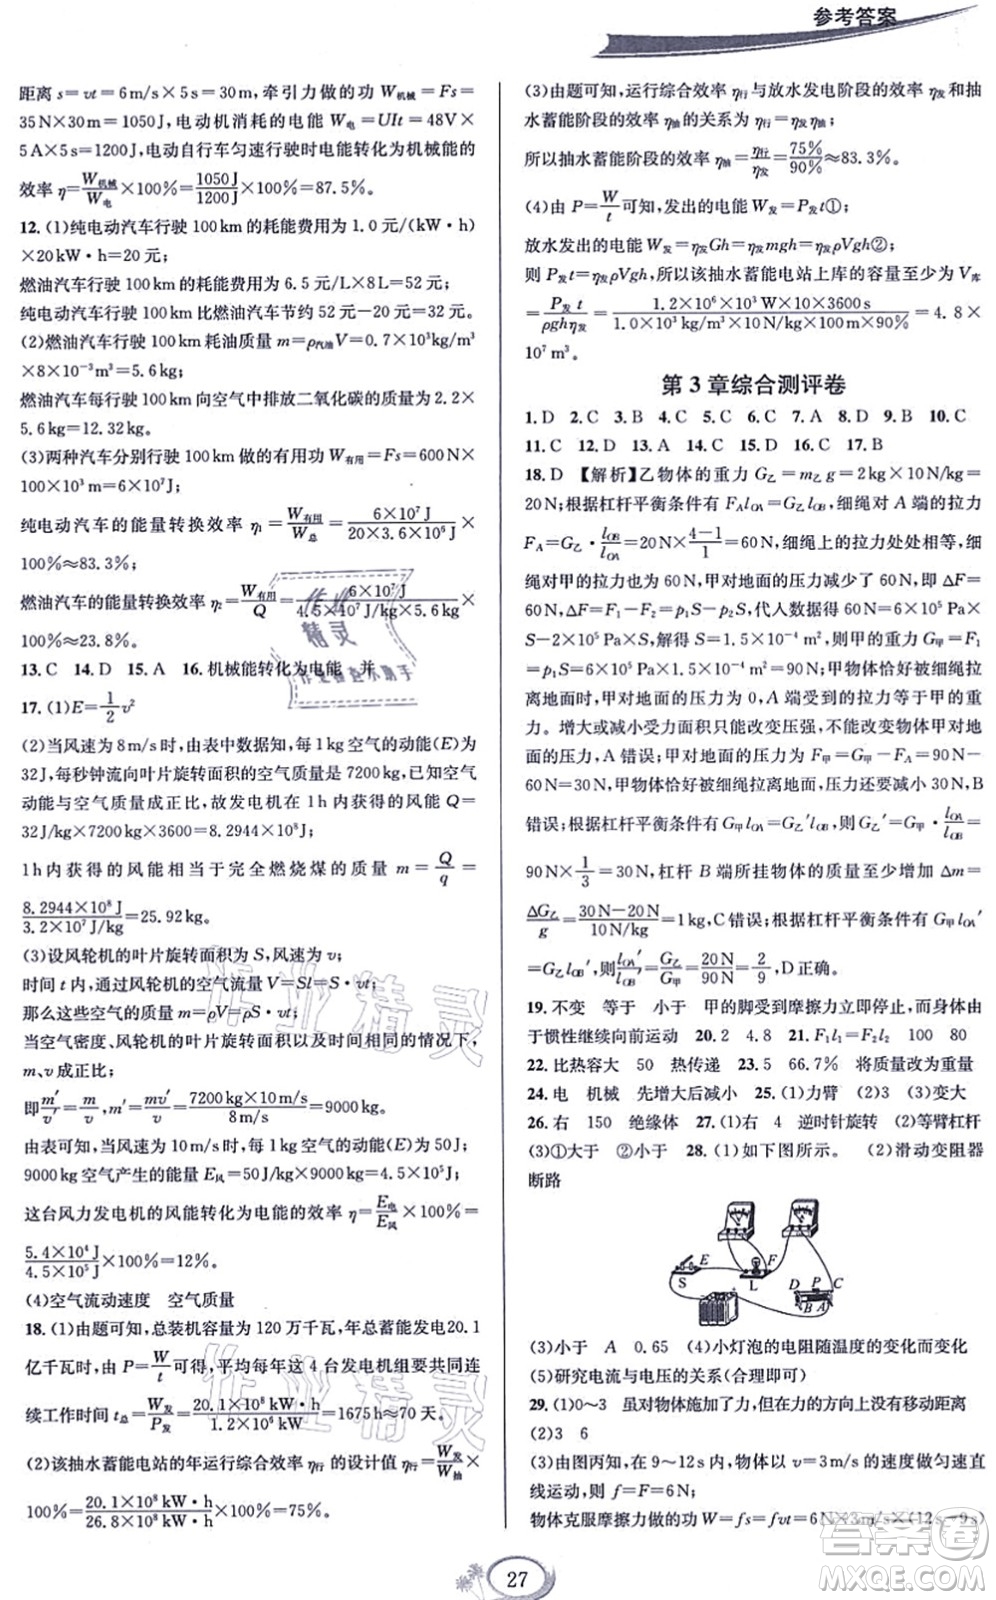 参考答案
距离 s=vt=6m/s×5s=30m,牵引力做的功 W机械=Fs=
35N×30m=1050J,电动机消耗的电能 W电=UIt=48V×
5A×5s=1200J,电动自行车匀速行驶时电能转化为机械能的
效率 η=W机械/W电×100%=1050J/1200J×100%=87.5%。
12. (1)纯电动汽车行驶 100km 的耗能费用为 1.0 元/(kW·h)
×20kW·h=20元;
燃油汽车行驶 100km 的耗能费用为 6.5 元/L×8L=52元;
纯电动汽车行驶 100km 比燃油汽车节约 52元-20元=32元。
(2)燃油汽车行驶 100km 耗油质量 m=ρ汽油V=0.7×10³kg/m³
×8×10⁻³m³=5.6kg;
燃油汽车每行驶 100km 向空气中排放二氧化碳的质量为 2.2×
5.6kg=12.32kg。
(3)两种汽车分别行驶 100km 的有用功 W有用=Fs=600N×
100×10³m=6×10⁷J,
纯电动汽车的能量转换效率 η₁=W有用/W总=6×10⁷J/20×3.6×10⁶J×
100%≈83.3%;
燃油汽车的能量转换效率 η₂=W有用/Q=6×10⁷J/4.5×10⁷J/kg×5.6kg×
100%≈23.8%。
13. C 14. D 15. A 16. 机械能转化为电能 并
17. (1)E=1/2v²
(2)当风速为8m/s时,由表中数据知,每1kg空气的动能(E)为
32J,每秒钟流向叶片旋转面积的空气质量是7200kg,已知空气
动能与空气质量成正比,故发电机在1h内获得的风能 Q=
32J/kg×7200kg×3600=8.2944×10⁸J;
1h内获得的风能相当于完全燃烧煤的质量 m=Q/q=
8.2944×10⁸J/3.2×10⁷J/kg=25.92kg。
(3)设风轮机的叶片旋转面积为 S,风速为 v;
时间 t 内,通过风轮机的空气流量 V=Sl=S·vt;
那么这些空气的质量为 m=ρV=ρS·vt;
当空气密度、风轮机的叶片旋转面积以及时间相同的情况下,
m、v成正比;
即m′/v′=m/v,m′=mv′/v=7200kg×10m/s/8m/s=9000kg。
由表可知,当风速为10m/s时,每1kg空气的动能(E)为50J;
9000kg空气产生的能量E风=50J/kg×9000kg=4.5×10⁵J;
这台风力发电机的风能转化为电能的效率 η=E电/E风×100%=
5.4×10⁴J/4.5×10⁵J×100%=12%。
(4)空气流动速度 空气质量
18. (1)由题可知,总装机容量为120万千瓦,年总蓄能发电20.1
亿千瓦时,由 P=W/t可得,平均每年这4台发电机组要共同连
续工作时间 t总=W发/P发=20.1×10⁸kW·h/1.2×10⁶kW=1675h≈70天。
(2)该抽水蓄能电站的年运行综合效率 η行的设计值=W发/W抽×
100%=20.1×10⁸kW·h/26.8×10⁸kW·h×100%=75%。
(3)由题可知,运行综合效率 η行与放水发电阶段的效率 η发和抽
水蓄能阶段的效率 η抽的关系为 η行=η发η抽;
所以抽水蓄能阶段的效率 η抽=η行/η发=75%/90%≈83.3%。
(4)由 P=W/t可知,发出的电能 W发=P发t①;
放水发出的电能 W发=η发Gh=η发mgh=η发ρVgh②;
则 P发t=η发ρVgh,所以该抽水蓄能电站上库的容量至少为 V库
=P发t/ρghη发=1.2×10⁶×10³W×10×3600s/1.0×10³kg/m³×10N/kg×100m×90%=4.8×
10⁷m³。
第3章综合测评卷
1. D 2. C 3. B 4. C 5. C 6. C 7. A 8. D 9. B 10. C
11. C 12. D 13. A 14. C 15. D 16. C 17. B
18. D 【解析】乙物体的重力 G乙=m乙g=2kg×10N/kg=
20N;根据杠杆平衡条件有 FAlOA=G乙lOB,细绳对 A 端的拉力
FA=G乙·lOB/lOA=20N×4-1/1=60N,细绳上的拉力处处相等,细
绳对甲的拉力也为60N,甲对地面的压力减少了60N,即ΔF=
60N,ΔF=F₁-F₂=p₁S-p₂S,代入数据得60N=6×10⁵Pa×
S-2×10⁵Pa×S,解得 S=1.5×10⁻⁴m²,原来甲对地面的压力
F₁=p₁S=6×10⁵Pa×1.5×10⁻⁴m²=90N;甲物体恰好被细绳拉
离地面时,甲对地面的压力为0,A端的拉力等于甲的重
力。增大或减小受力面积只能改变压强,不能改变物体甲对地
面的压力,A错误;甲对地面的压力=G甲-F=90N-
60N=30N,甲物体恰好被细绳拉离地面时,还要减小30N,B
错误;根据杠杆平衡条件有 G甲lOA=G乙′lOB,所以G乙′=G甲·lOA/lOB=
90N×1/3=30N,杠杆 B 端所挂物体的质量至少增加 Δm=
ΔG乙/g=30N-20N/10N/kg=1kg,C错误;根据杠杆平衡条件有G甲lOA′
=G乙lOB′,则lOA′/lOB′=G乙/G甲=20N/90N=2/9,D正确。
19. 不变 等于 小于 甲的脚受到摩擦力立即停止,而身体由
于惯性继续向前运动 20. 2 4.8 21. F₁l₁=F₂l₂ 100 80
22. 比热容大 50 热传递 23. 5 66.7% 将质量改为重量
24. 电 机械 先增大后减小 25. (1)力臂 (2)3 (3)变大
26. 右 150 绝缘体 27. (1)右 4 逆时针旋转 (2)等臂杠杆
(3)①大于 ②小于 28. (1)如下图所示。 (2)滑动变阻器
断路
S E L F D P C B A
(3)小于 A 0.65 (4)小灯泡的电阻随温度的变化而变化
(5)研究电流与电压的关系(合理即可)
29. (1)0~3 虽对物体施加了力,但在力的方向上没有移动距离
(2)3 6
(3)由图丙知,在9~12s内,物体以 v=3m/s的速度匀速直
线运动,则 f=F=6N;
物体克服摩擦力做的功 W=fs=fvt=6N×3m/s×(12s-9s)
27
作业精灵
答案圈
MXQE.COM